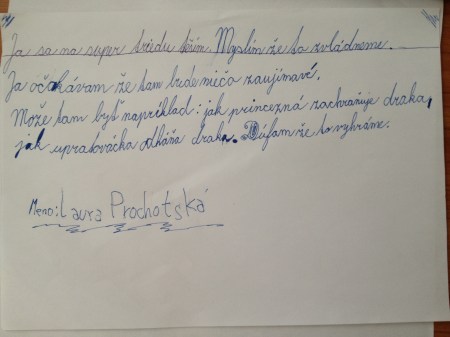 Ja sa na super triedu teším. Myslím že to zvládneme.
Ja očakávam že tam bude niečo zaujímavé.
Može tam byť napriklad: jak princezná zachraňuje draka,
jak upratovačka odháňa draka. Dúfam že to vyhráme.
Meno: Laura Prochotská